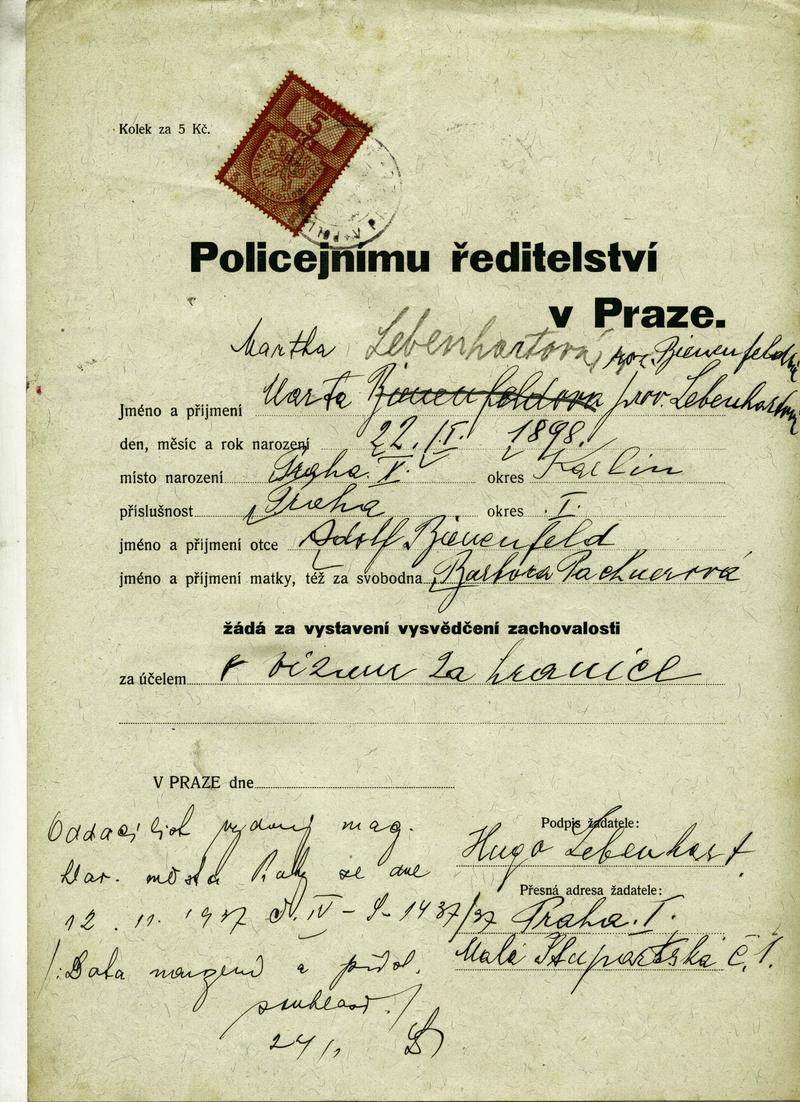 Kolek za 5 Kč.
5
Kč
Policejnímu ředitelství
v Praze.
Martha Lebenhartová, roz. Bienenfeldová
Jméno a příjmení Marta Bienenfeldova prov. Lebenhartová
den, měsíc a rok narození 22. II. 1898.
místo narození Praha X. okres Karlín
příslušnost Praha okres I.
jméno a příjmení otce Adolf Bienenfeld
jméno a příjmení matky, též za svobodna Barbora Packnerová
žádá za vystavení vysvědčení zachovalosti
za účelem k vízum za hranice
V PRAZE dne
Oddací list vydaný mag.
Podpis žadatele:
Hugo Lebenhart
hlav. města Prahy ze dne
Přesná adresa žadatele:
12. 11. 1937 č. IV - S - 1437/37
Praha. I.
/: Data narození a přísl.
Malá Štupartská č. 1.
souhlasí :/
24/1